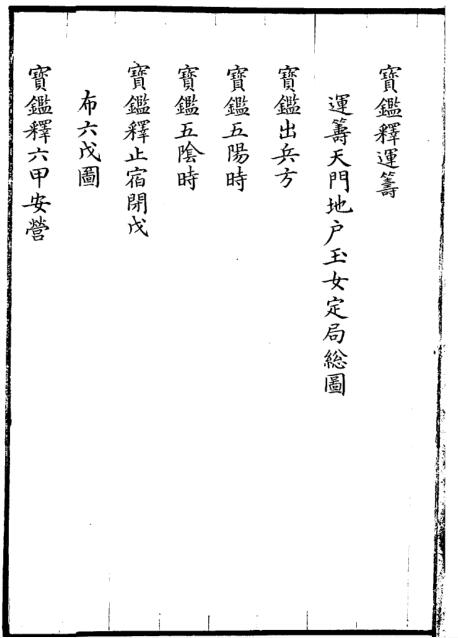 寶鑑釋運籌
運籌天門地户玉女定局総圖
寶鑑出兵方
寶鑑五陽時
寶鑑五陰時
寶鑑釋止宿閉戊
布六戊圖
寶鑑釋六甲安營